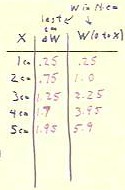 W in 14 cm
last
cm
X ΔW W(0 to x)
1cm .25 .25
2cm .75 1.0
3cm 1.25 2.25
4cm 1.7 3.95
5cm 1.95 5.9